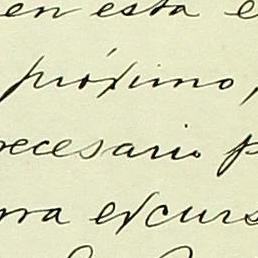 en esta e
próximo,
necesario p
ra excurs